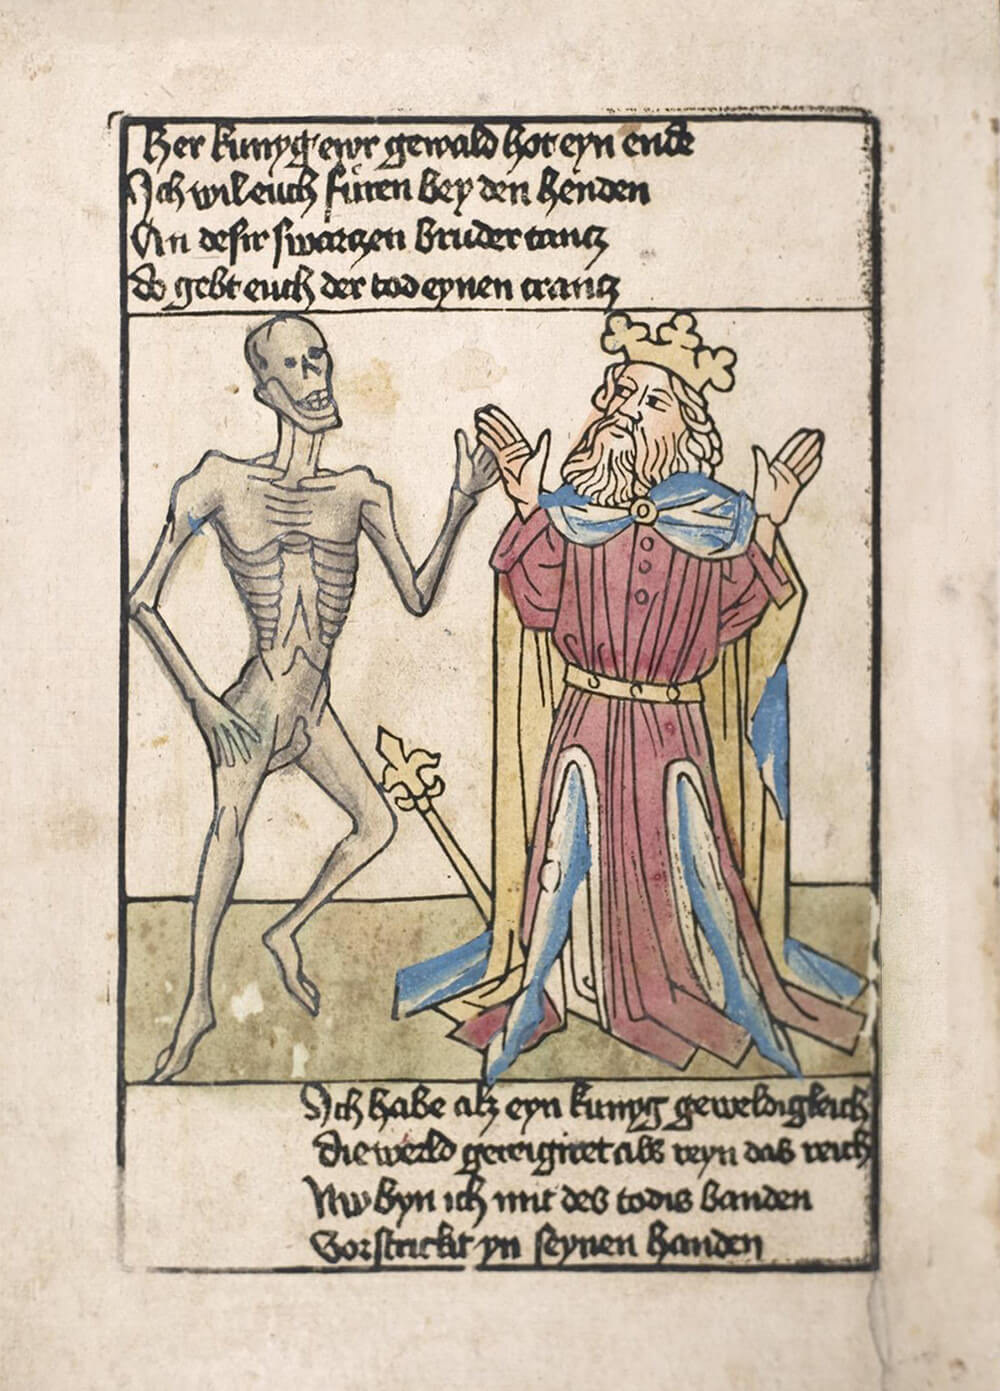 Her kunyg ewr gewald hot eyn ende
Ich wil euch füren bey den henden
An desir swarczen bruder tancz
do gebt euch der tod eynen crancz
Ich habe alz eyn kunyg geweldigleich
die werld geregniret als reyn das reich
Nw byn ich mit des todis banden
Vorstrickt yn seynen handen